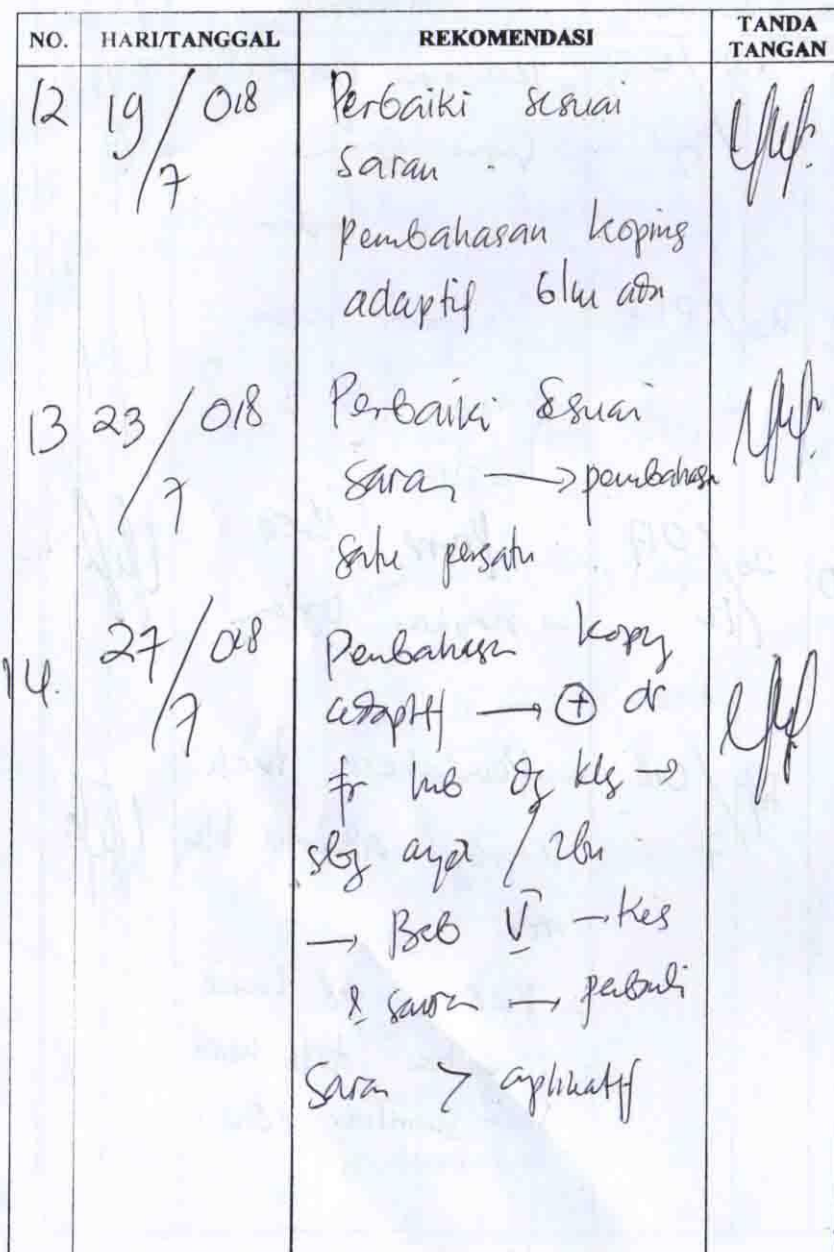 NO. HARI/TANGGAL REKOMENDASI TANDA TANGAN
12 19/7 018 Perbaiki sesuai
saran.
Pembahasan koping
adaptif blm ada
13 23/7 018 Perbaiki sesuai
saran → pembahasan
satu persatu
14. 27/7 018 Pembahasan koping
adaptif → + dr
hub dg klg →
sbg / ibu
→ Bab V → Kes
& saran → perbaiki
Saran > aplikatif